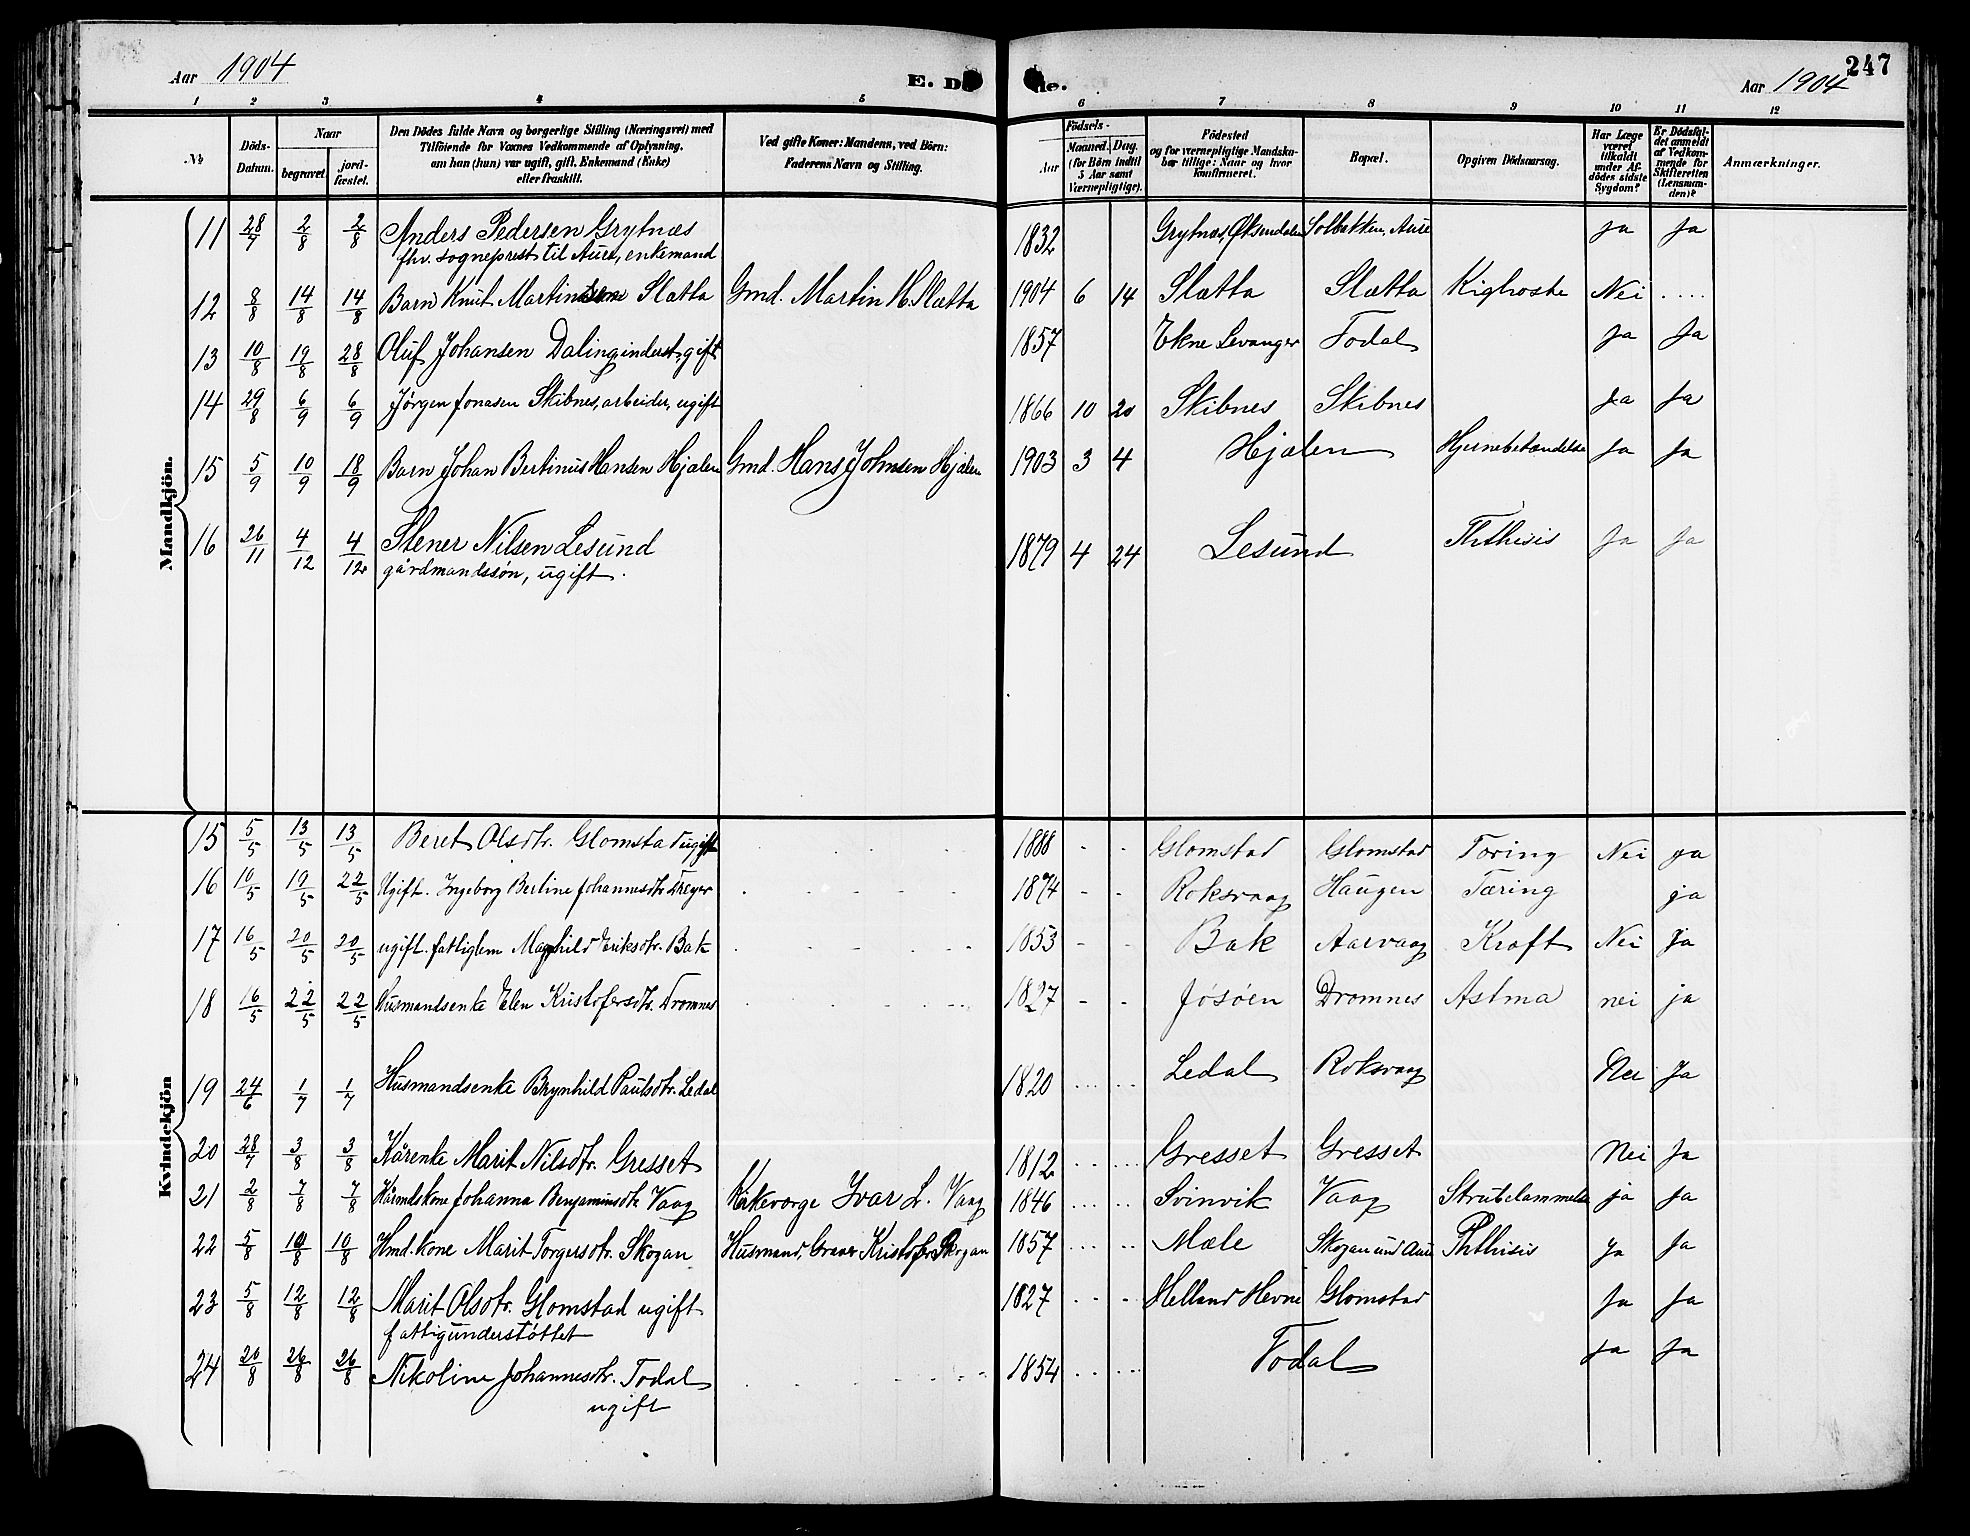 Aar 1904 E. Döde. Aar 1904 247
1 2 3 4 5 6 7 8 9 10 11 12
№ Döds-Datum. Naar begravet jordfæstet. Den Dödes fulde Navn og borgerlige Stilling (Næringsvei) med Tilföiende for Voxnes Vedkommende af Oplysning, om han (hun) var ugift, gift, Enkemand (Enke) eller fraskilt. Ved gifte Koner: Mandens, ved Börn: Faderens Navn og Stilling. Födsels- Aar Maaned. Dag. (for Börn indtil 5 Aar samt Værnepligtige). Födested og for værnepligtige Mandskaber tillige: Naar og hvor konfirmeret. Bopæl. Opgiven Dödsaarsag. Har Læge været tilkaldt under Afdödes sidste Sygdom? Er Dödsfaldet anmeldt af Vedkommende for Skifteretten (Lensmanden)? Anmærkninger.
Mandkjön.
11 28/7 2/8 2/8 Anders Pedersen Grytnæs 1832 Grytnæs, Øksendalen Solbakken, Aure Ja Ja
fhv. sogneprest til Aure, enkemand
12 8/8 14/8 14/8 Barn Knut Martinsen Slætta Gmd. Martin H. Slætta 1904 6 14 Slætta Slætta Kighoste Nei .....
13 10/8 19/8 28/8 Oluf Johansen Daling inderst, gift 1857 Ekne Levanger Todal Ja Ja
14 29/8 6/9 6/9 Jørgen Jonasen Skibnes, arbeider, ugift 1866 10 20 Skibnes Skibnes Ja Ja
15 5/9 10/9 18/9 Barn Johan Bertinus Hansen Hjælen Gmd. Hans Johnsen Hjælen 1903 3 4 Hjælen Hjernebetændelse Ja Ja
16 26/11 4/12 4/12 Stener Nilsen Lesund 1879 4 24 Lesund Phthisis Ja Ja
gårdmandssøn, ugift.
Kvindekjön
15 5/5 13/5 13/5 Beret Olsdtr. Glomstad ugift 1888 - - Glomstad Glomstad Tæring Nei ja
16 10/5 19/5 22/5 Ugift. Ingeborg Berline Johannesdtr Dreyer 1874 - - Roksvaag Haugen Tæring ja
17 16/5 20/5 20/5 ugift. fattiglem Maghild Eriksdtr. Bak 1853 - - Bak Aarvaag Kræft Nei Ja
18 16/5 22/5 22/5 Husmandsenke Elen Kristofersdtr. Dromnes 1827 - - Jøsøen Dromnes Astma nei ja
19 24/6 1/7 1/7 Husmandsenke Brynhild Paulsdtr. Ledal 1820 Ledal Roksvaag Nei Ja
20 28/7 3/8 3/8 Kårenke Marit Nilsdtr. Gresset 1812 Gresset Gresset Nei Ja
21 2/8 7/8 7/8 Kårmdskone Johanna Benjaminsdtr Vaag Kirkeværge Ivar L. Vaag 1846 Svinvik Vaag Strubelammelse ja Ja
22 5/8 10/8 10/8 Hmd. kone Marit Torgersdtr. Skogan Husmand, Graver Kristofer Skogan 1857 Mæle Skogan und Aure Phthisis Ja Ja
23 5/8 12/8 12/8 Marit Olsdtr. Glomstad ugift 1827 Helland Hevne Glomstad Ja Ja
fattigunderstøttet
24 20/8 26/8 26/8 Nikoline Johannesdtr. Todal 1854 Todal Ja Ja
ugift